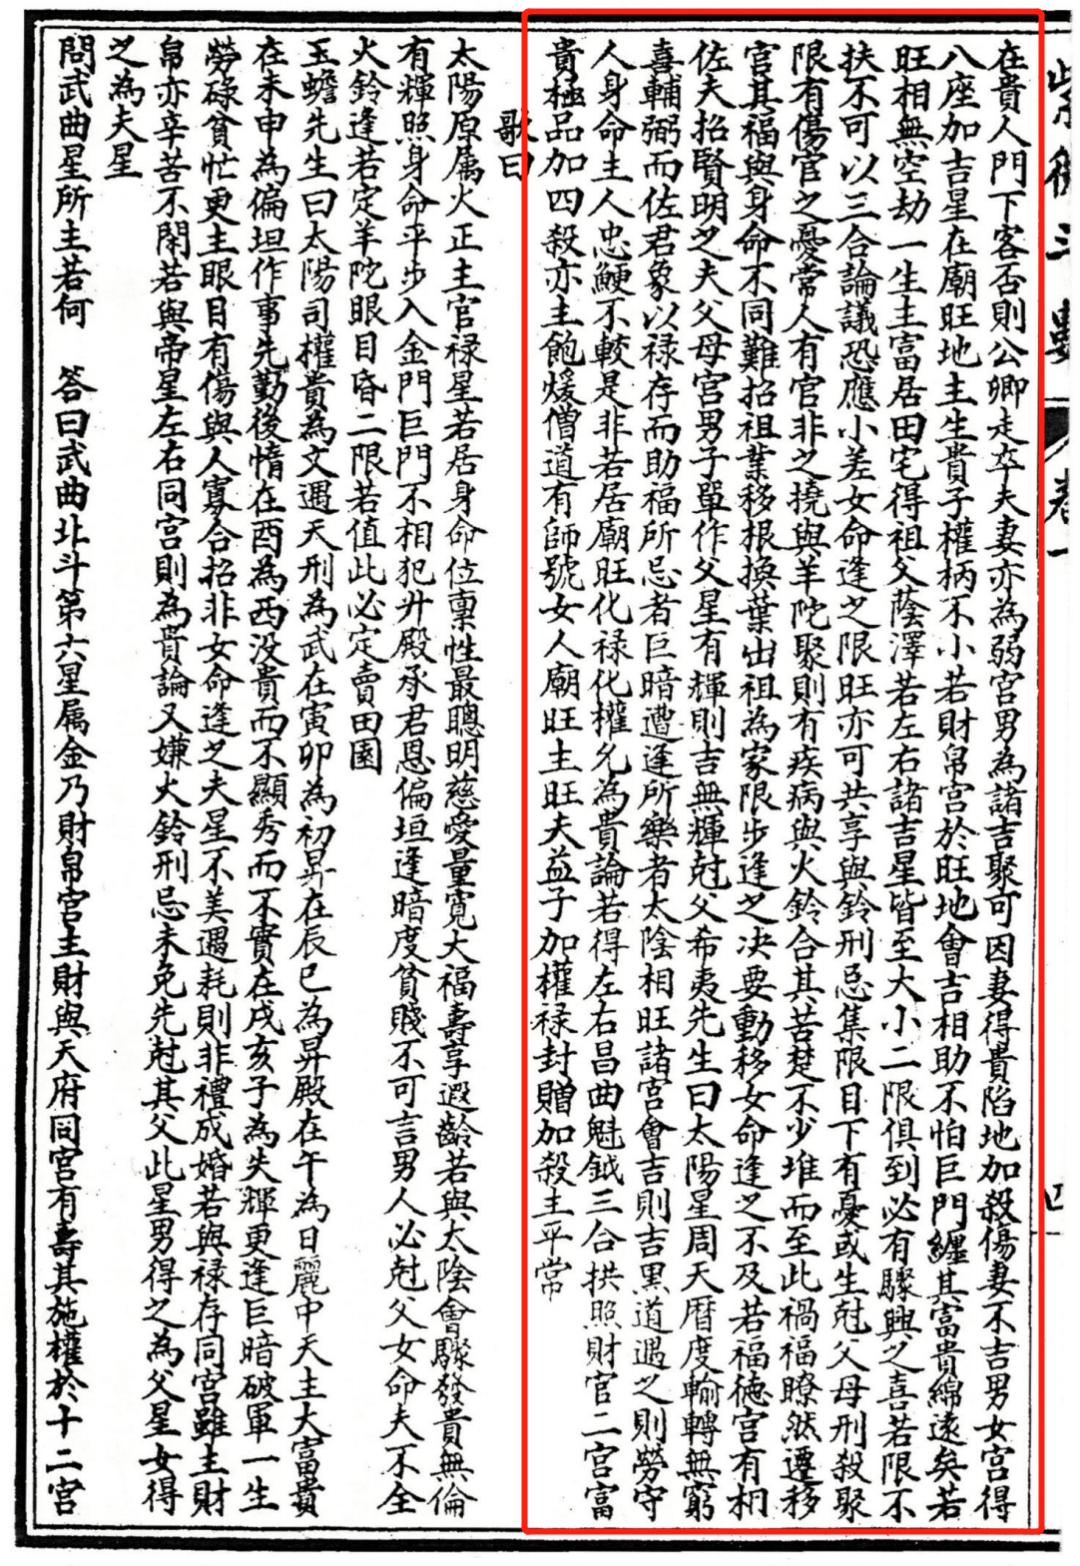 紫微斗數
卷一
四
在貴人門下客否則公卿走卒夫妻亦為弱宮男為諸吉聚可因妻得貴陷地加殺傷妻不吉男女宮得
八座加吉星在廟旺地主生貴子權柄不小若財帛宮於旺地會吉相助不怕巨門纏其富貴綿遠矣若
旺相無空劫一生主富居田宅得祖父蔭澤若左右諸吉星皆至大小二限俱到必有驟興之喜若限不
扶不可以三合論議恐應小差女命逢之限旺亦可共享與鈴刑忌集限目下有憂或生尅父母刑殺聚
限有傷官之憂常人有官非之撓與羊陀聚則有疾病與火鈴合其苦楚不少堆而至此禍福瞭然遷移
宮其福與身命不同難招祖業移根換葉出祖為家限步逢之决要動移女命逢之不及若福德宮有相
佐夫招賢明之夫父母宮男子單作父星有輝則吉無輝尅父希夷先生曰太陽星周天曆度輪轉無窮
喜輔弼而佐君象以祿存而助福所忌者巨暗遭逢所樂者太陰相旺諸宮會吉則吉黑道遇之則勞守
人身命主人忠鯁不較是非若居廟旺化祿化權允為貴論若得左右昌曲魁鉞三合拱照財官二宮富
貴極品加四殺亦主飽煖僧道有師號女人廟旺主旺夫益子加權祿封贈加殺主平常
歌曰
太陽原属火正主官祿星若居身命位稟性最聰明慈愛量寬大福壽享遐齡若與太陰會驟發貴無倫
有輝照身命平步入金門巨門不相犯升殿承君恩偏垣逢暗度貧賤不可言男人必尅父女命夫不全
火鈴逢若定羊陀眼目昏二限若值此必定賣田園
玉蟾先生曰太陽司權貴為文遇天刑為武在寅卯為初昇在辰巳為昇殿在午為日麗中天主大富貴
在未申為偏垣作事先勤後惰在酉為西没貴而不顯秀而不實在戌亥子為失輝更逢巨暗破軍一生
勞碌貧忙更主眼目有傷與人寡合招非女命逢之夫星不美遇耗則非禮成婚若與祿存同宮雖主財
帛亦辛苦不閑若與帝星左右同宮則為貴論又嫌火鈴刑忌未免先尅其父此星男得之為父星女得
之為夫星
問武曲星所主若何　答曰武曲北斗第六星属金乃財帛宮主財與天府同宮有壽其施權於十二宮